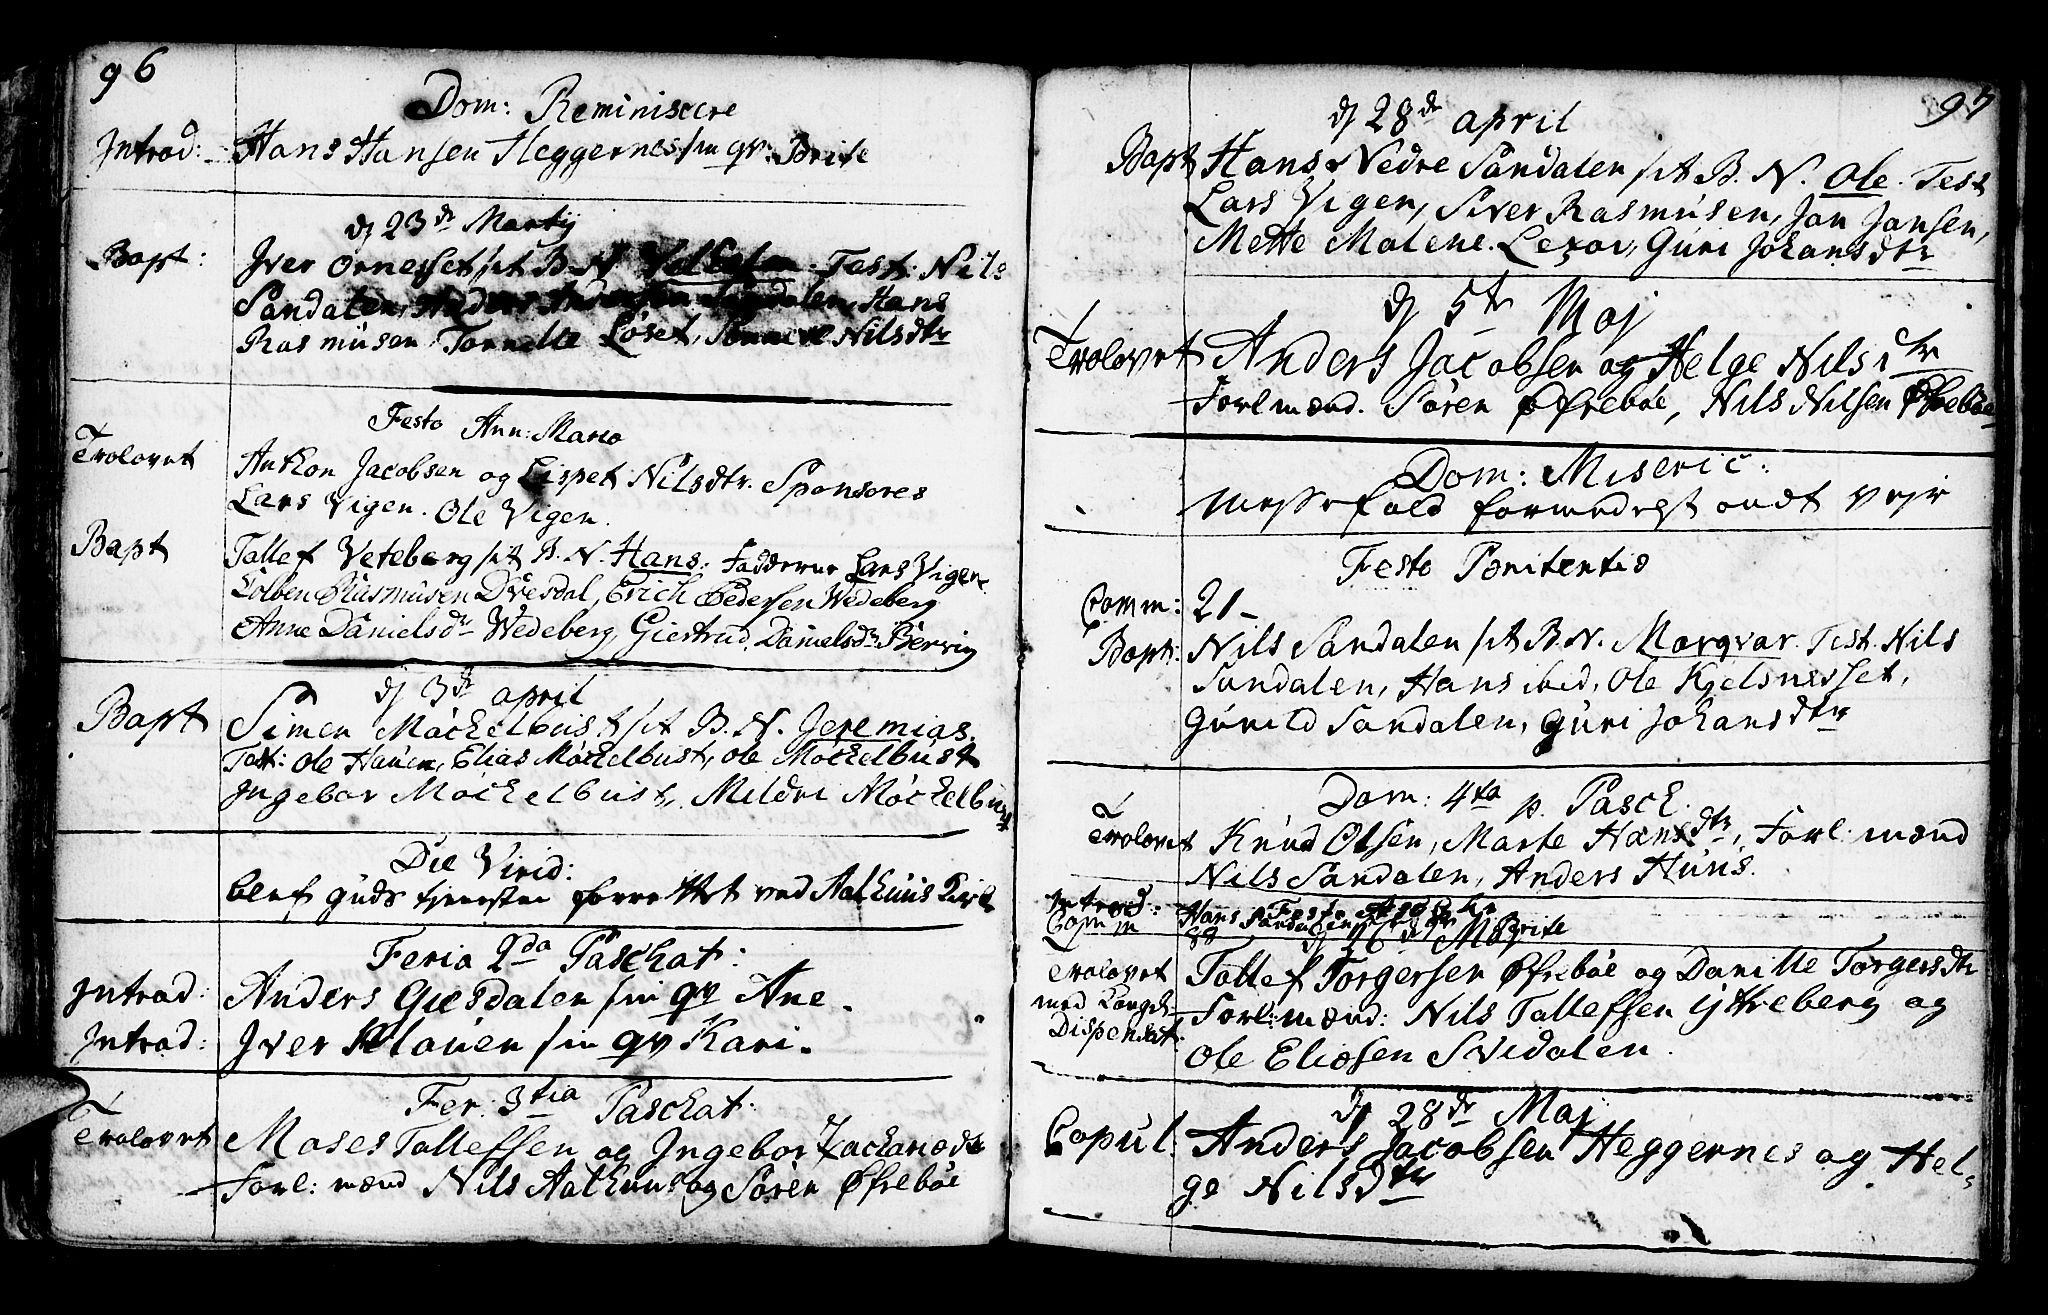 96
Dom: Reminiscere
Introd: Hans Hansen Heggernes sin qv: Brite
dj 23de Martij
Bapt: Iver Ornesset sit B. N. Test: Nils
Sandalen, Anders Hans
Rasmusen, Tornille Løset, Nilsdtr
Festo Ann: Mario
Trolovet Anthon Jacobsen og Lispet Nilsdtr. Sponsores
Lars Vigen. Ole Vigen.
Bapt Tollef Veteberg sit B. N. Hans. Fadderne Lars Vigen
Colben Rasmusen Dvesdal, Erich Pedersen Wedeberg
Anne Danielsdr Wedeberg, Giertrud Danielsdr Bervig
dj 3de april
Bapt Simen Møckelbust sit B. N. Jeremias.
Test: Ole Hauen, Elias Møckelbust, Ole Møckelbust
Ingebor Møckelbust, Mildri Møckelbust
Die Virid:
blef guds tjenesten forrettet ved Aalhuus Kirke
Feria 2da Paschat:
Introd: Anders Giesdalen sin qv Ane.
Introd: Iver Klauen sin qv Kari.
Fer: 3tia Paschat:
Trolovet Moses Tollefsen og Ingebor Zachariædtr
Forl: mænd Nils Aalhuus og Søren Øfrebøe
97
dj 28de april
Bapt Hans Nedre Sandalen sit B. N. Ole. Test
Lars Vigen, Siver Rasmusen, Jon Jansen,
Mette Malene Lexov, Guri Johansdtr
dj 5te Maj
Trolovet Anders Jacobsen og Helge Nilsdtr
Forlmænd. Søren Øfrebøe, Nils Nilsen Øfrebøe
Dom: Miseric:
Messefald formedelst ondt veir
Festo Pænitentiæ
Comm: 21 -
Bapt: Nils Sandalen sit B. N. Marqvar. Test. Nils
Sandalen, Hans ibid, Ole Kjelsnesset,
Gunild Sandalen, Guri Johansdtr
Dom: 4ta p. Pasch.
Trolovet Knud Olsen, Marte Hansdtr, Forl: mænd
Nils Sandalen, Anders Huns.
Introd: Hans Sandalen sin qv Brite
Festo
Comm 88
dj 16 Maj
Trolovet Tollef Torgersen Øfrebøe og Danille Torgersdtr
med Kongel. Forl: mænd: Nils Tollefsen Ytreberg og
Dispensat: Ole Eliæsen Svidalen.
dj 28de Maj
Copul. Anders Jacobsen Heggernes og Hel-
ge Nilsdtr